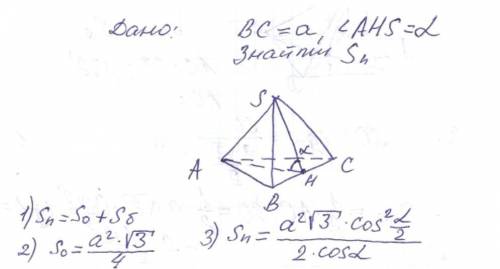 Дано: BC = a, ∠AHS = α
Знайти Sп
S
A
α
C
H
B
1) Sп = So + Sδ
2) So = a²·√3 / 4
3) Sп = a²√3·cos² α/2 / 2·cosα